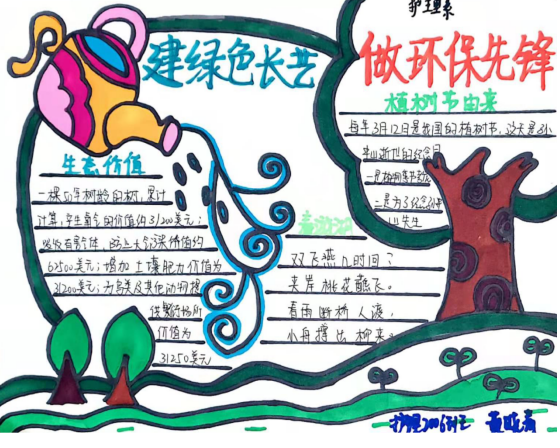 护理系
建绿色长艺
做环保先锋
植树节由来
每年3月12日是我国的植树节，这天是孙
中山逝世的纪念日
二是为了纪念孙中
山先生
生态价值
一棵50年树龄的树，累计
计算，产生氧气的价值约31200美元；
吸收有毒气体、防止大气污染价值约
62500美元；增加土壤肥力价值为
31200美元；为鸟类及其他动物提
供繁衍场所
价值为
31250美元
双飞燕几时回？
夹岸桃花蘸
水
看雨断桥人
渡，
小舟撑出柳
来。